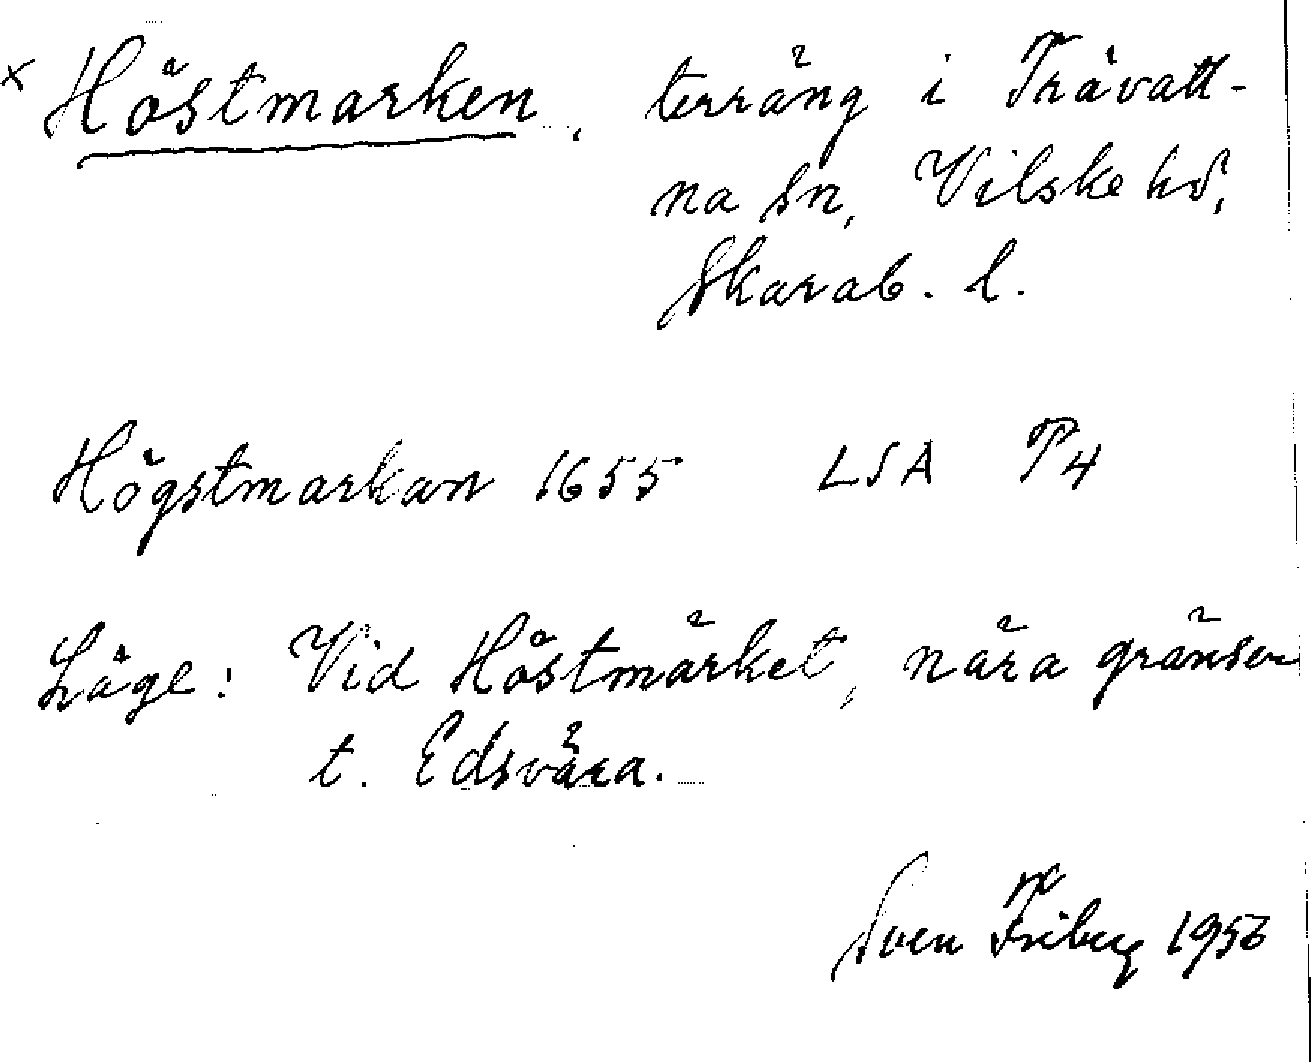 x Höstmarken, terräng i Trävatt-
na sn, Vilske hd,
Skarab. l.
Högstmarkan 1655 LSA P4
Läge: Vid Höstmärket, nära gränsen
t. Edsvära.
Sven Friberg 1956